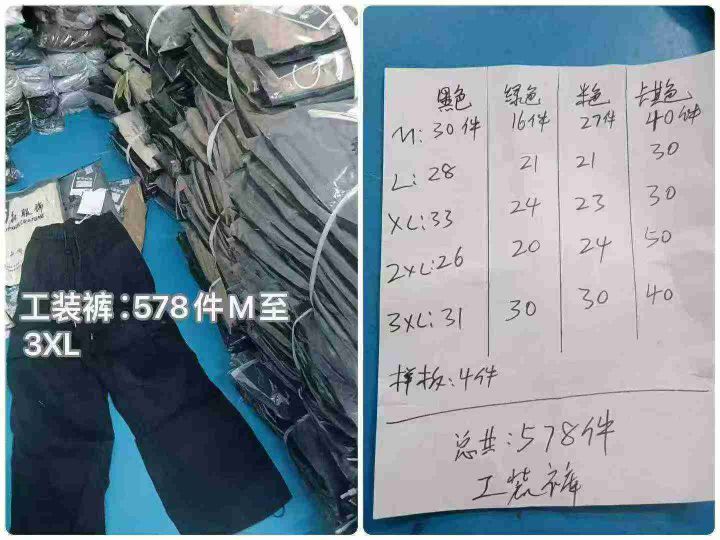 工装裤：578件M至
3XL
黑色 绿色 米色 卡其色
M: 30件 16件 27件 40件
L: 28 21 21 30
XL: 33 24 23 30
2XL: 26 20 24 50
3XL: 31 30 30 40
样板: 4件
总共: 578件
工装裤